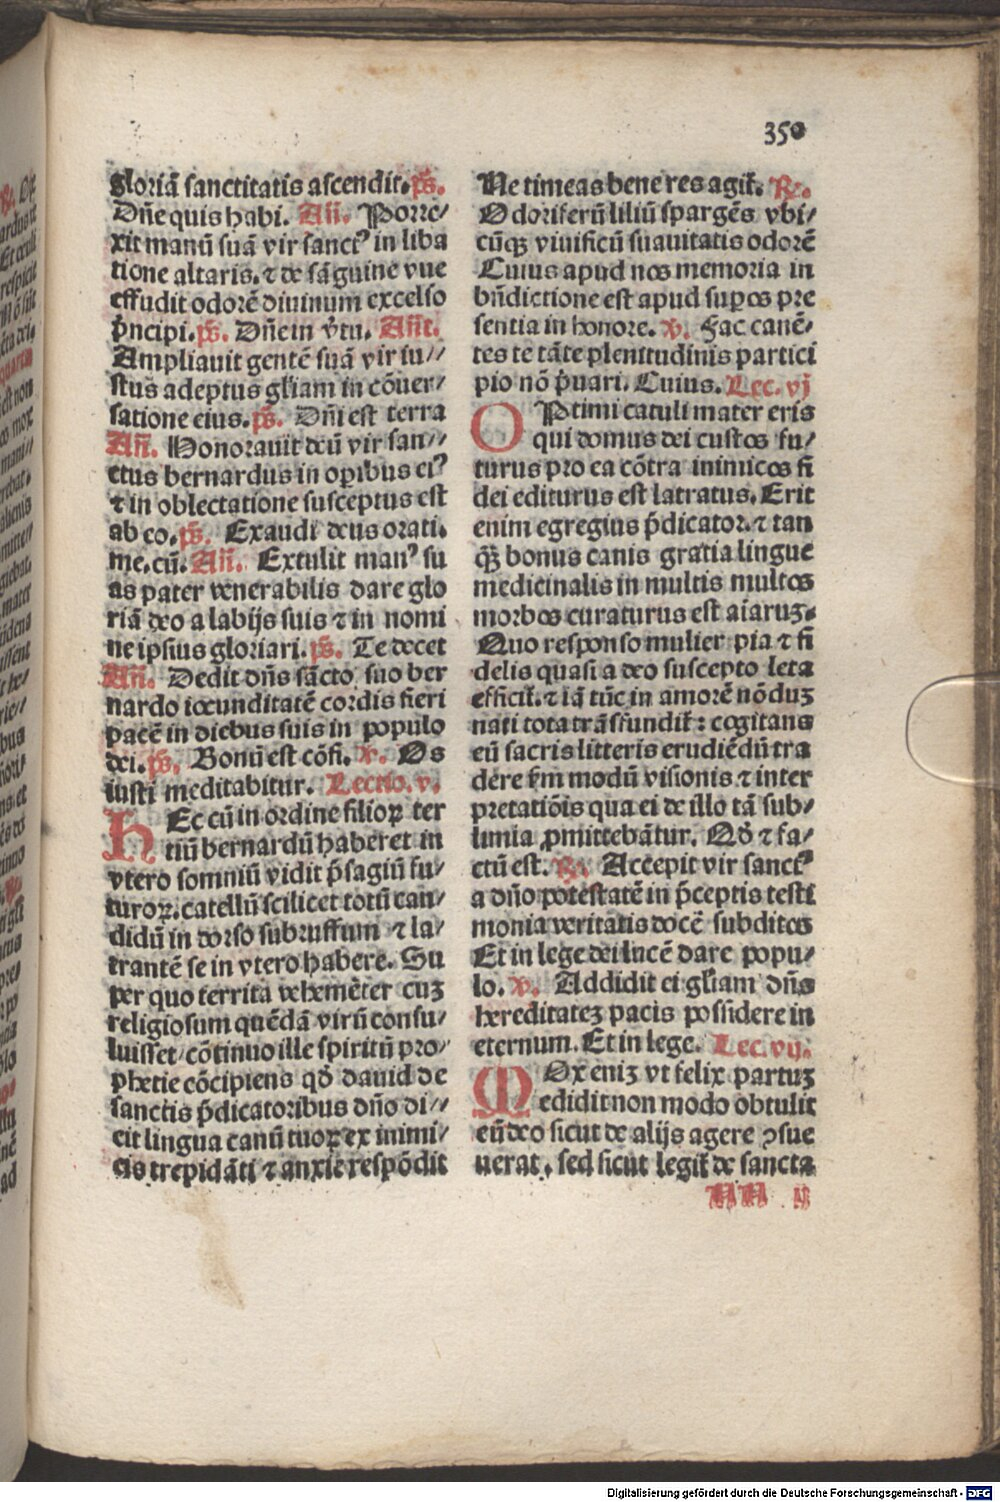 350
gloriā sanctitatis ascendit. ps̄.
Dn̄e quis habi. An̄. Porre/
xit manū suā vir sanctꝰ in liba
tione altaris. ⁊ de sāguine vue
effudit odorē diuinum excelso
p̄ncipi. ps̄. Dn̄e in v̄tu. An̄t.
Ampliauit gentē suā vir iu//
stus adeptus gl̄iam in cōuer/
satione eius. ps̄. Dn̄i est terra
An̄. Honorauit deū vir san//
ctus bernardus in oꝑibus eiꝰ
⁊ in oblectatione susceptus est
ab eo. ps̄. Exaudi deus orati.
me. cū. An̄. Extulit manꝰ su
as pater venerabilis dare glo
riā deo a labijs suis ⁊ in nomi
ne ipsius gloriari. ps̄. Te decet
An̄. Dedit dn̄s sācto suo ber
nardo iocunditatē cordis fieri
pacē in diebus suis in populo
dei. ps̄. Bonū est cōfi. ℣. Os
iusti meditabitur. Lectio. v.
HEc cū in ordine filioꝝ ter
tiū bernardū haberet in
vtero somniū vidit p̄sagiū fu/
turoꝝ. catellū scilicet totū can/
didū in dorso subruffum ⁊ la/
trantē se in vtero habere. Su
per quo territa vehemēter cuꝫ
religiosum quēdā virū consu/
luisset cōtinuo ille spiritū pro/
phetie cōcipiens qđ dauid de
sanctis p̄dicatoribus dn̄o di//
cit lingua canū tuoꝝ ex inimi/
cis trepidāti ⁊ anxie respōdit
Ne timeas bene res agit̄. ℟.
Odoriferū liliū spargēs vbi/
cūqꝫ viuificū suauitatis odorē
Cuius apud nos memoria in
bn̄dictione est apud suꝑos pre
sentia in honore. ℣. Fac canē/
tes te tāte plenitudinis partici
pio nō p̄uari. Cuius. Lec. vj
OPtimi catuli mater eris
qui domus dei custos fu/
turus pro ea cōtra inimicos fi
dei editurus est latratus. Erit
enim egregius p̄dicator. ⁊ tan
qꝫ̄ bonus canis gratia lingue
medicinalis in multis multos
morbos curaturus est aīaruꝫ.
Quo responso mulier pia ⁊ fi
delis quasi a deo suscepto leta
efficit̄. ⁊ iā tūc in amorē nōduꝫ
nati tota trāsfundit̄: cogitans
eū sacris litteris erudiēdū tra
dere s̄m modū visionis ⁊ inter
pretatiōis qua ei de illo tā sub/
limia ꝓmittebātur. Qđ ⁊ fa/
ctū est. ℟. Accepit vir sanctꝰ
a dn̄o potestatē in p̄ceptis testi
monia veritatis docē subditos
Et in lege dei lucē dare popu/
lo. ℣. Addidit ei gl̄iam dn̄s
hereditateꝫ pacis possidere in
eternum. Et in lege. Lec. vij.
MOx eniꝫ vt felix partuꝫ
edidit non modo obtulit
eū deo sicut de alijs agere ꝯsue
uerat. sed sicut legit̄ de sancta
ij
Digitalisierung gefördert durch die Deutsche Forschungsgemeinschaft - DFG